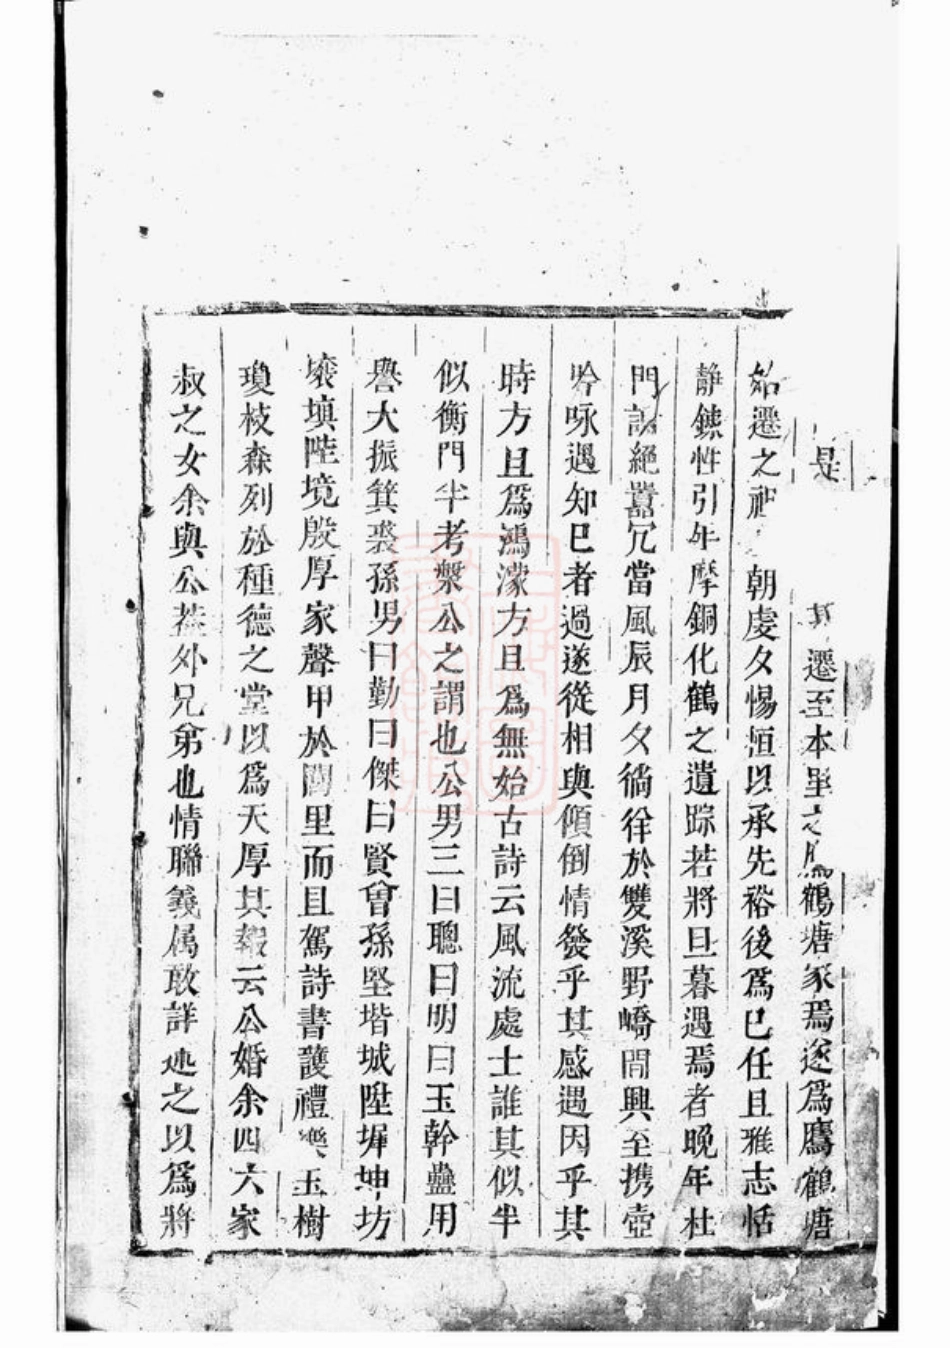 是 遷至本里之 鶴塘家焉遂為鷹鶴塘
始遷之祖 朝虔夕惕恒以承先裕後為已任且雅志恬
静鍊性引年摩銅化鶴之遺踪若將旦暮遇焉者晚年杜
門 絕囂冗當風辰月夕徜徉於雙溪野嶠間興至携壺
吟咏遇知已者過遂從相與傾倒情發乎其感遇因乎其
時方且為鴻濛方且為無始古詩云風流處士誰其似半
似衡門半考槃公之謂也公男三曰聰曰明曰玉幹蠱用
譽大振箕裘孫男曰勤曰傑曰賢曾孫堅堦城陞墀坤坊
壊填陛境殷厚家聲甲於閭里而且駕詩書護禮樂玉樹
瓊枝森列於種德之堂以為天厚其報云公婚余四六家
叔之女余與公葢外兄弟也情聯義属敢詳述之以為將